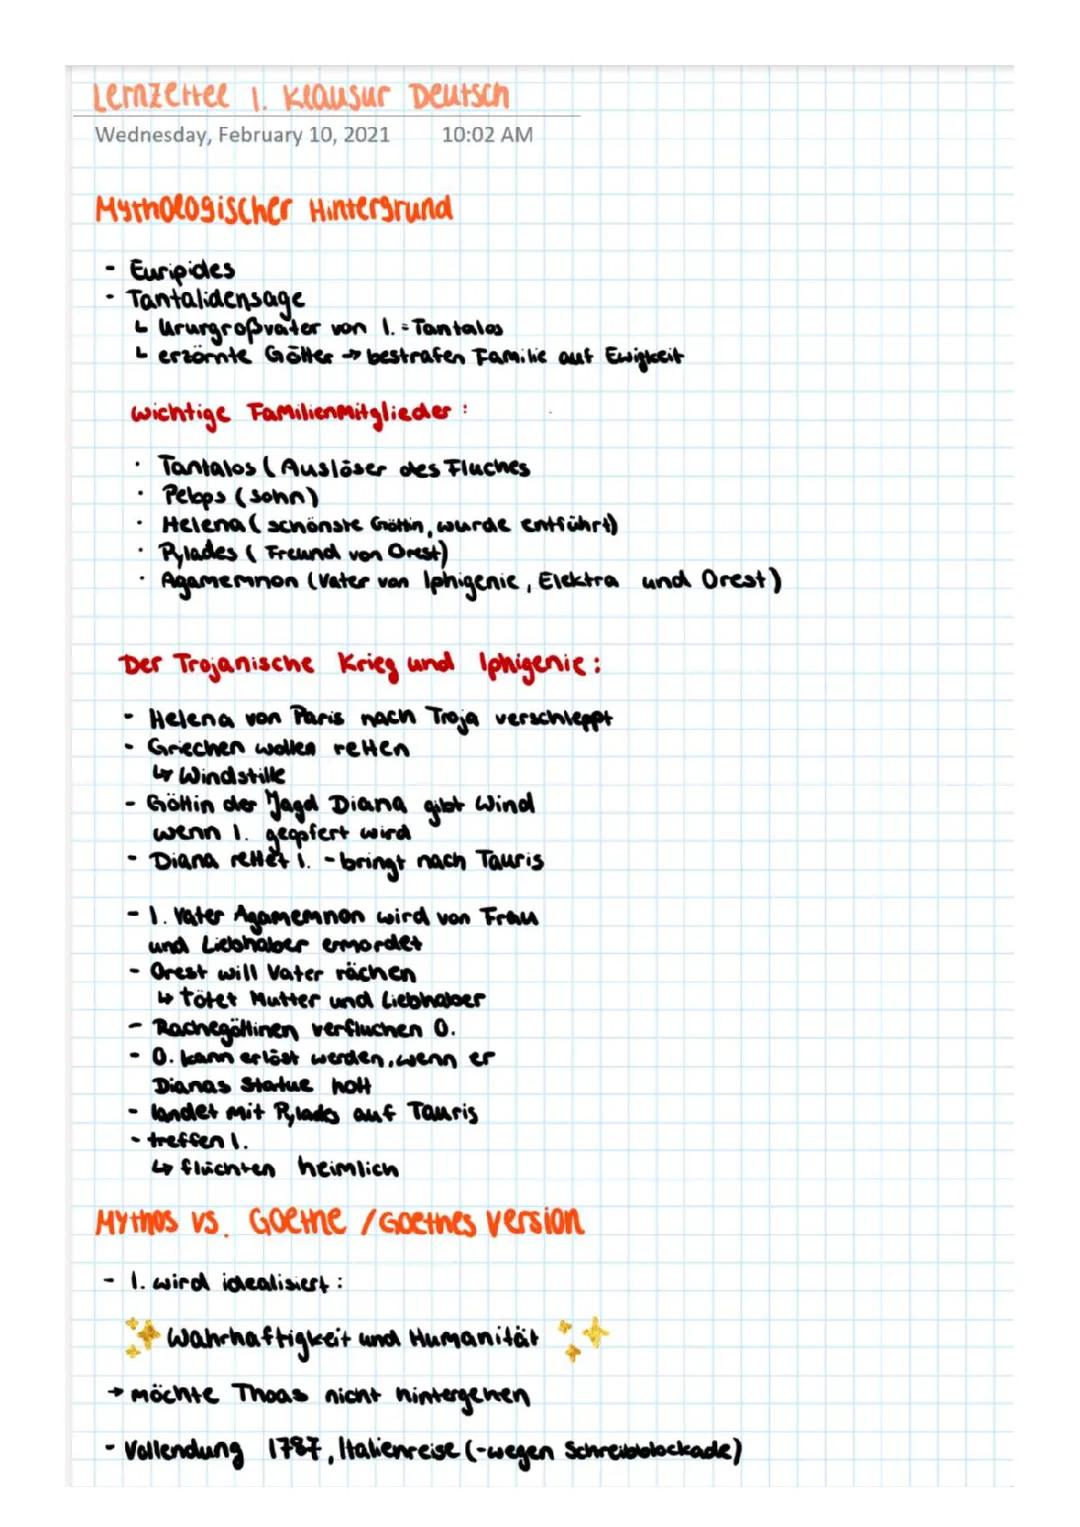 Lernzettel 1. Klausur Deutsch
Wednesday, February 10, 2021 10:02 AM
Mythologischer Hintergrund
- Euripides
- Tantalidensage
↳ Ururgroßvater von I. = Tantalos
↳ erzörnte Götter → bestrafen Familie auf Ewigkeit
wichtige Familienmitglieder :
· Tantalos ( Auslöser des Fluches
· Pelops (sohn)
· Helena ( schönste Göttin, wurde entführt)
· Pylades ( Freund von Orest)
· Agamemnon (Vater von Iphigenie, Elektra und Orest)
Der Trojanische Krieg und Iphigenie :
- Helena von Paris nach Troja verschleppt
- Griechen wollen retten
↳ Windstille
- Göttin der Jagd Diana gibt Wind
wenn I. geopfert wird
- Diana rettet I. - bringt nach Tauris
- I. Vater Agamemnon wird von Frau
und Liebhaber ermordet
- Orest will Vater rächen
↳ tötet Mutter und Liebhaber
- Rachegöttinen verfluchen O.
- O. kann erlöst werden, wenn er
Dianas Statue holt
- landet mit Pylades auf Tauris
- treffen I.
↳ flüchten heimlich
Mythos vs. Goethe / Goethes Version
- I. wird idealisiert :
Wahrhaftigkeit und Humanität
→ möchte Thoas nicht hintergehen
- Vollendung 1787, Italienreise (-wegen Schreibblockade)